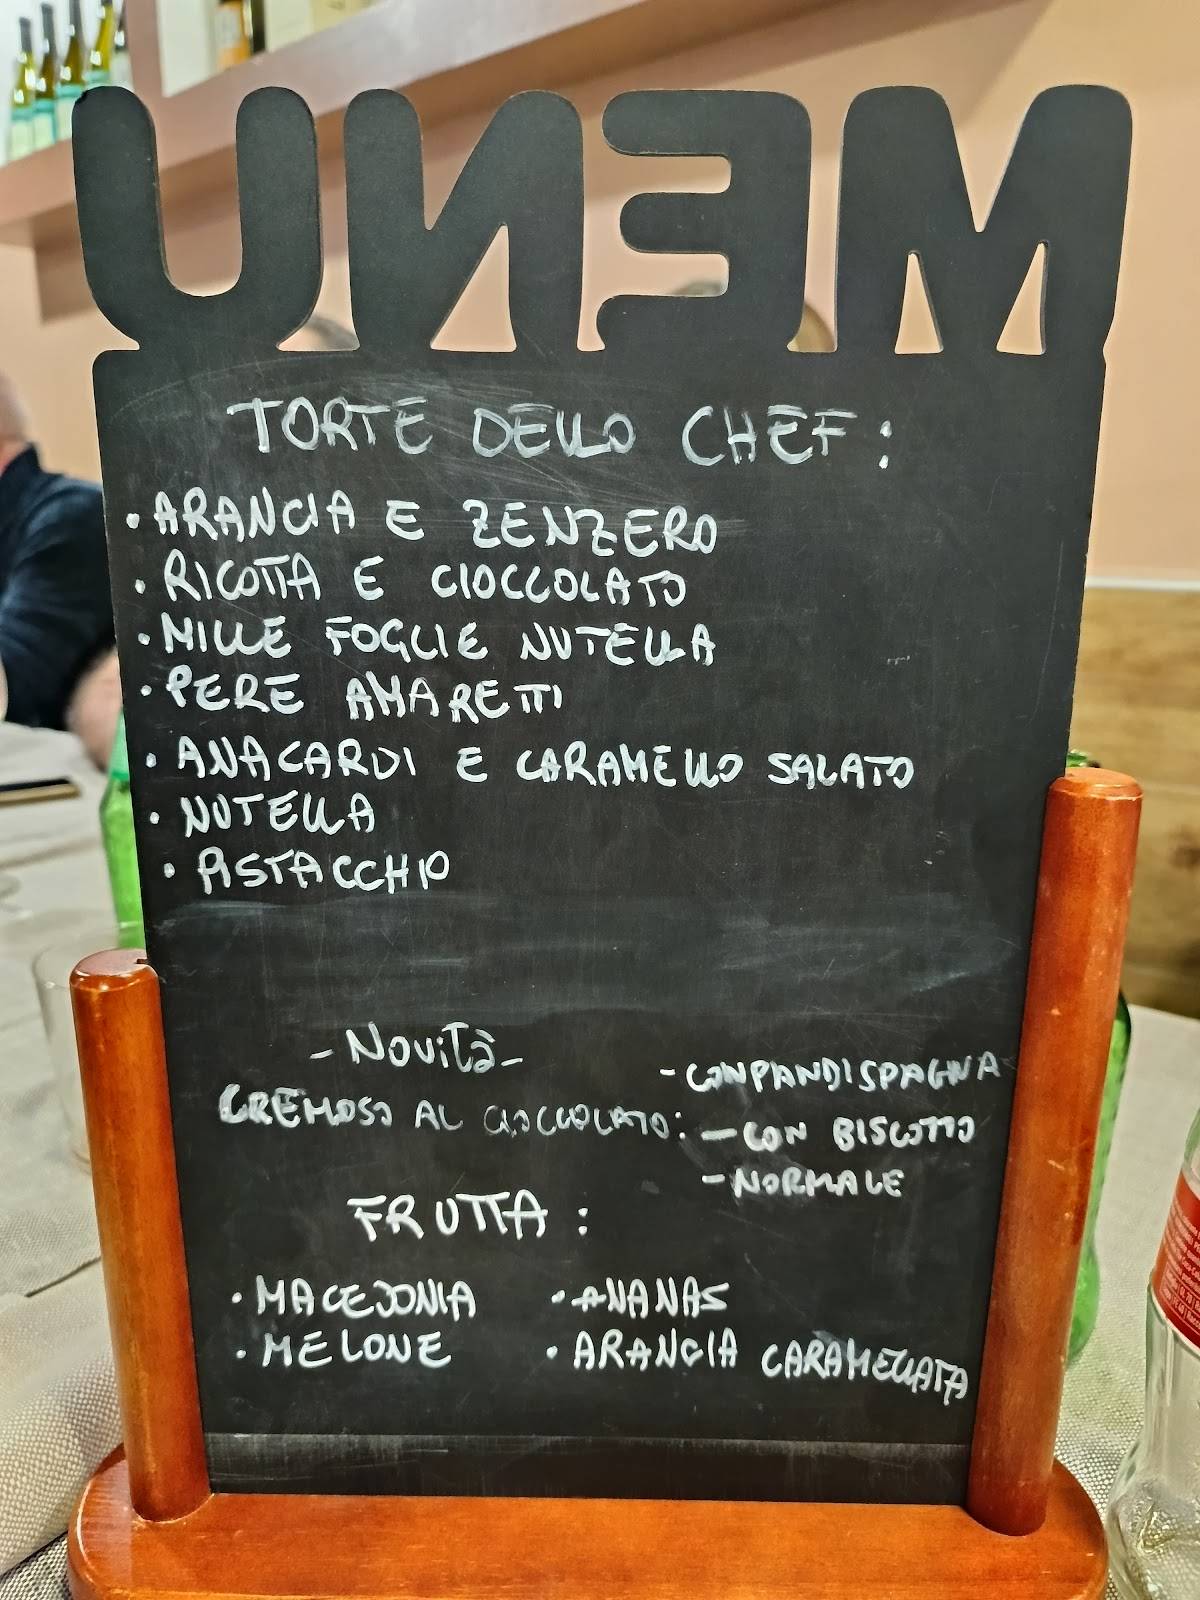 MENU
TORTE DELLO CHEF:
• ARANCIA E ZENZERO
• RICOTTA E CIOCCOLATO
• MILLE FOGLIE NUTELLA
• PERE AMARETTI
• ANACARDI E CARAMELLO SALATO
• NUTELLA
• PISTACCHIO
- Novità -
CREMOSO AL CIOCCOLATO:
- CON PAN DI SPAGNA
- CON BISCOTTO
- NORMALE
FRUTTA:
• MACEDONIA
• MELONE
• ANANAS
• ARANCIA CARAMELLATA